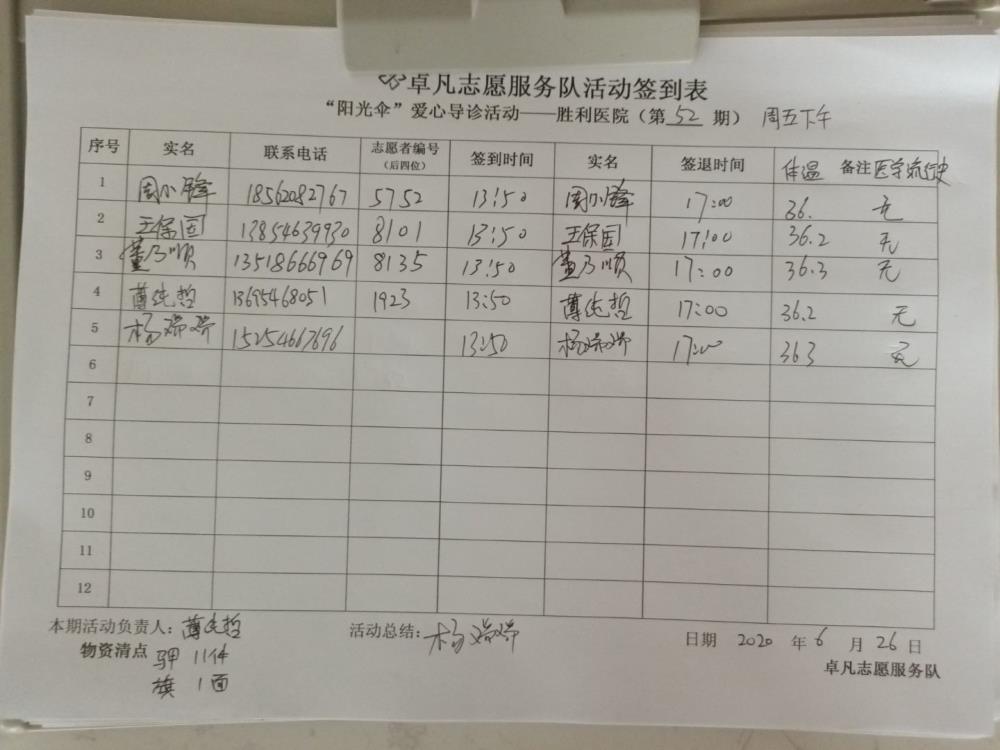 卓凡志愿服务队活动签到表
“阳光伞”爱心导诊活动——胜利医院（第 52 期） 周五下午
序号 实名 联系电话 志愿者编号（后四位） 签到时间 实名 签退时间 体温 备注 医学流行史
1 周小峰 18562082767 5752 13:50 周小峰 17:00 36. 无
2 王保国 13854639930 8101 13:50 王保国 17:00 36.2 无
3 董乃顺 13518666969 8135 13:50 董乃顺 17:00 36.3 无
4 薄纯哲 13695468051 1923 13:50 薄纯哲 17:00 36.2 无
5 杨瑞瑞 15254667696 13:50 杨瑞瑞 17:00 36.3 无
6
7
8
9
10
11
12
本期活动负责人：薄纯哲 活动总结：杨瑞瑞 日期 2020 年 6 月 26 日
物资清点 马甲 11件 卓凡志愿服务队
旗 1面